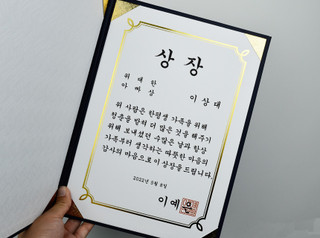 상 장
위 대 한
아 빠 상
이 상 태
위 사람은 한평생 가족을 위해
청춘을 바쳐 더 많은 것을 해주기
위해 보내셨던 수많은 날과 항상
가족부터 생각하는 따뜻한 마음의
감사의 마음으로 이 상장을 드립니다.
2022년 5월 8일
이 예 은